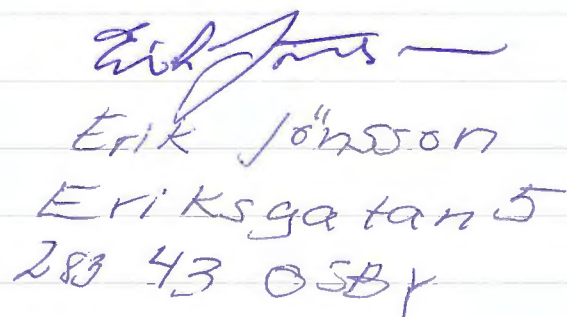 Erik Jönsson
Erik Jönsson
Eriksgatan 5
283 43 OSBY